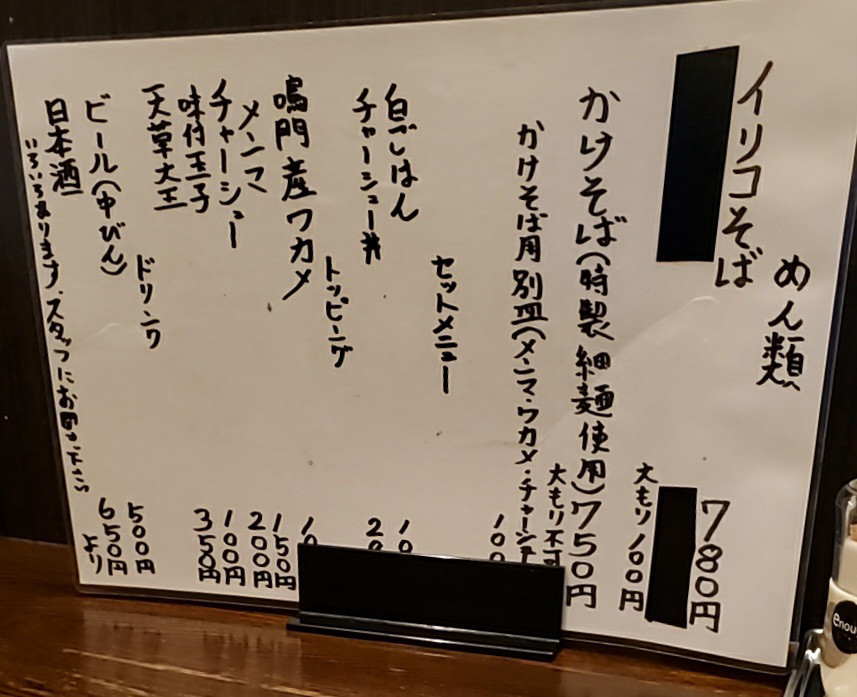 めん類
イリコそば 780円
大もり 100円
かけそば(特製細麺使用)750円
大もり不可
かけそば用 別皿(メンマ・ワカメ・チャーシュ 100
セットメニュー
白ごはん 10
チャーシュー丼 20
トッピング
鳴門産ワカメ 10
メンマ 150円
チャーシュー 200円
味付玉子 100円
天草大王 350円
ドリンク
ビール(中びん) 500円
日本酒 650円より
いろいろあります。スタッフにお聞き下さい
enou